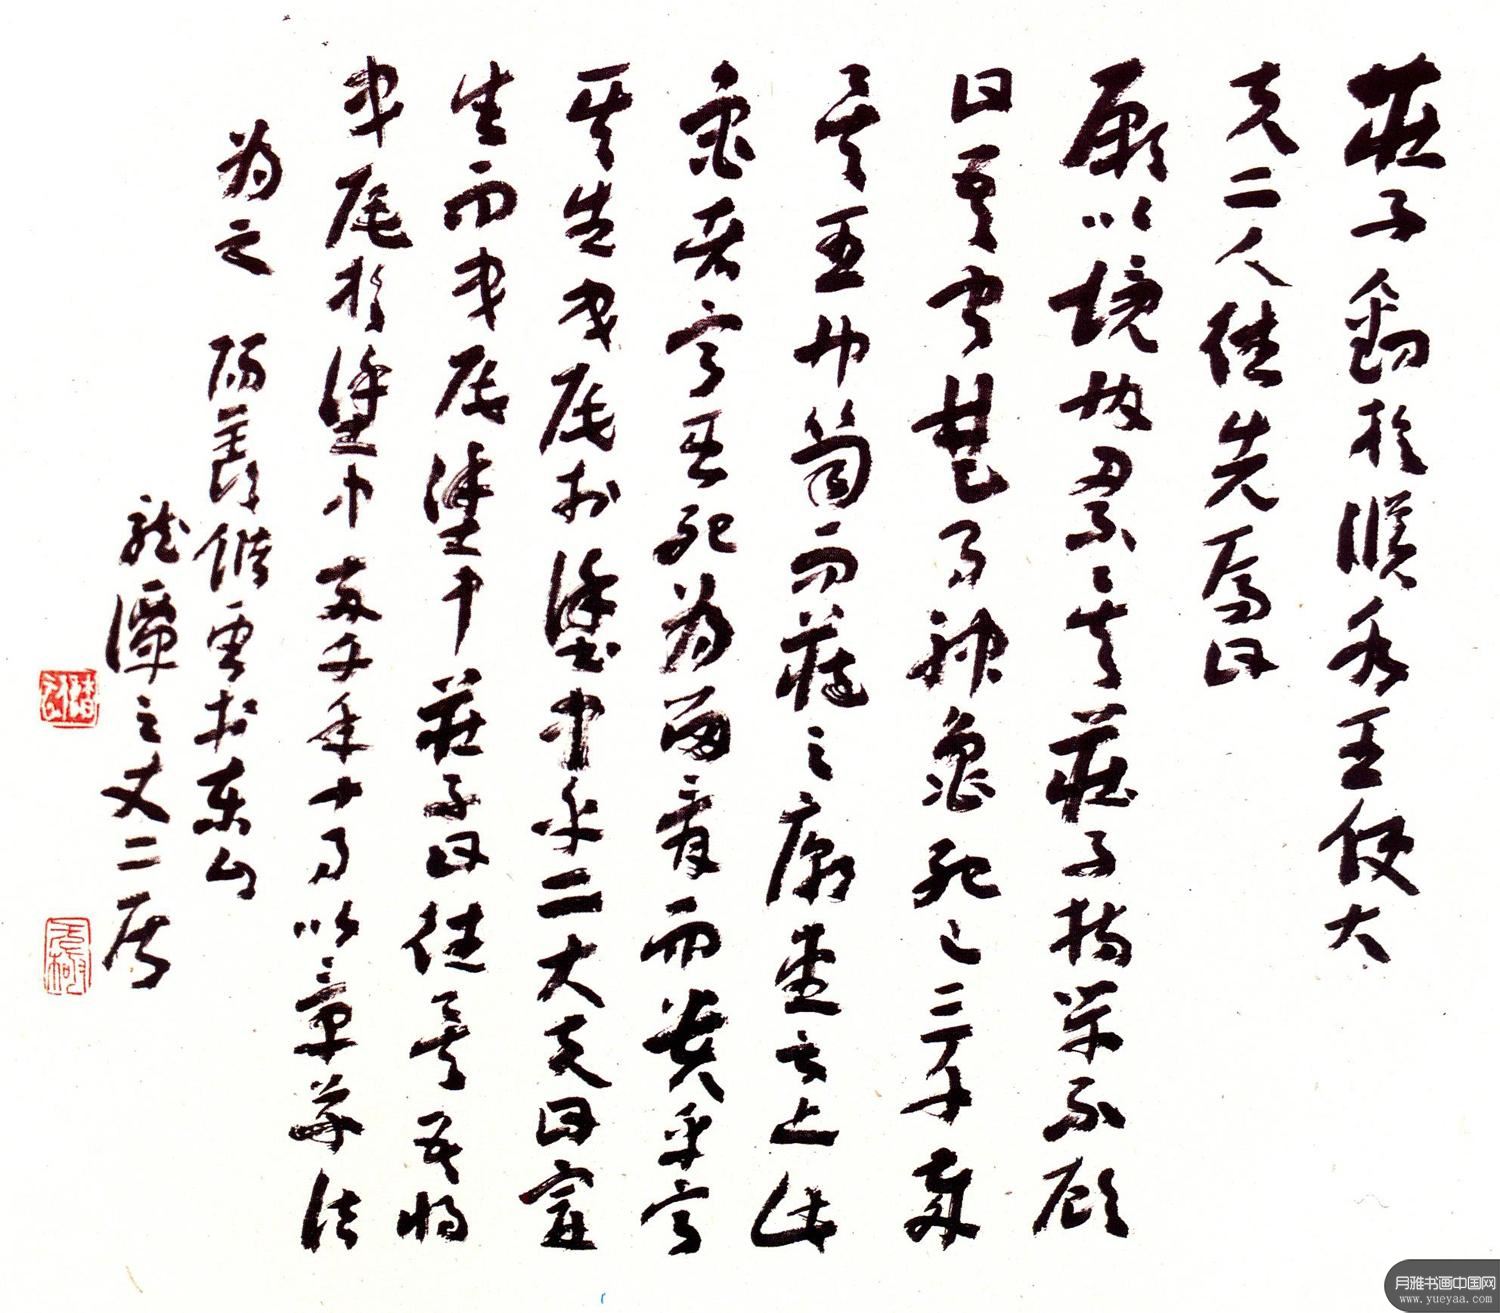 莊子釣於濮水王使大
夫二人往先焉曰
願以境内累矣莊子持竿不顧
曰吾聞楚有神龜死已三千歲
矣王巾笥而藏之廟堂之上此
龜者寧其死為留骨而貴乎寧
其生曳尾於塗中乎二大夫曰寧
生而曳尾塗中莊子曰往矣吾將
曳尾於塗中歲午年十月以章草法
為之 陽羨儲雲於東山
龍潭之丈二居
月雅书画中国网
www.yueyaa.com